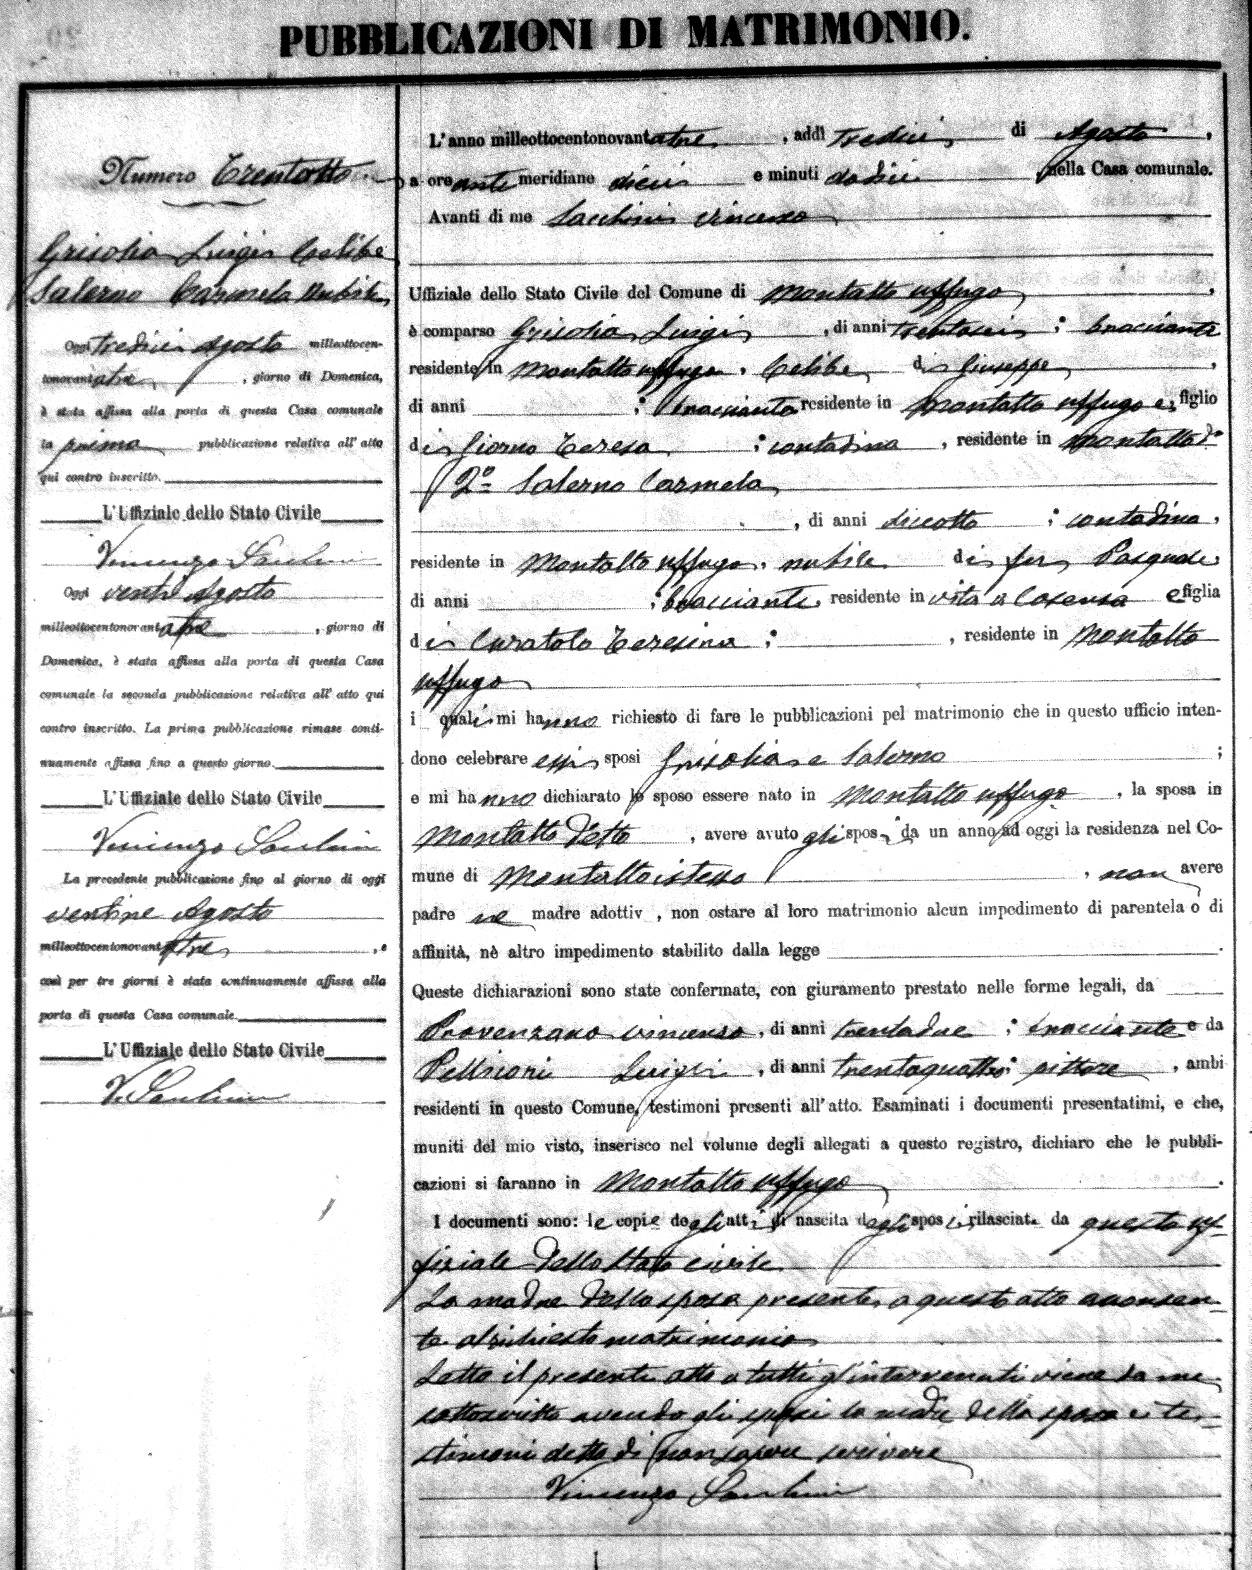 PUBBLICAZIONI DI MATRIMONIO.
Numero Trentotto
Grisolia Luigi Celibe
Salerno Carmela Nubile
Oggi tredici Agosto milleottocen-
tonovantatre, giorno di Domenica,
è stata affissa alla porta di questa Casa comunale
la prima pubblicazione relativa all'atto
qui contro inscritto.
L'Uffiziale dello Stato Civile
Vincenzo
Oggi venti Agosto
milleottocentonovantatre, giorno di
Domenica, è stata affissa alla porta di questa Casa
comunale la seconda pubblicazione relativa all'atto qui
contro inscritto. La prima pubblicazione rimase conti-
nuamente affissa fino a questo giorno.
L'Uffiziale dello Stato Civile
Vincenzo
La precedente pubblicazione fino al giorno di oggi
Agosto
milleottocentonovantatre, e
così per tre giorni è stata continuamente affissa alla
porta di questa Casa comunale.
L'Uffiziale dello Stato Civile
V.
L'anno milleottocentonovantatre, addì tredici di Agosto,
a ore antemeridiane dieci e minuti dodici, nella Casa comunale.
Avanti di me Vincenzo
Uffiziale dello Stato Civile del Comune di Montalto Uffugo,
è comparso Grisolia Luigi, di anni trentasei; bracciante
residente in Montalto Uffugo, Celibe di Giuseppe,
di anni ; bracciante residente in Montalto Uffugo e figlio
di Giorno Teresa ; contadina, residente in Montalto do
2º Salerno Carmela
, di anni diciotto ; contadina,
residente in Montalto Uffugo, nubile di fu Pasquale
di anni ; bracciante, residente in vita a Cosenza e figlia
di Curatolo Teresina ; , residente in Montalto
Uffugo
i quali mi hanno richiesto di fare le pubblicazioni pel matrimonio che in questo ufficio inten-
dono celebrare essi sposi Grisolia e Salerno ;
e mi hanno dichiarato lo sposo essere nato in Montalto Uffugo, la sposa in
Montalto detto, avere avuto gli sposi da un anno ad oggi la residenza nel Co-
mune di Montalto istesso, non avere
padre ne madre adottiv , non ostare al loro matrimonio alcun impedimento di parentela o di
affinità, nè altro impedimento stabilito dalla legge .
Queste dichiarazioni sono state confermate, con giuramento prestato nelle forme legali, da
Provenzano Vincenzo, di anni trentadue ; bracciante e da
Luigi, di anni trentaquattro; pittore, ambi
residenti in questo Comune, testimoni presenti all'atto. Esaminati i documenti presentatimi, e che,
muniti del mio visto, inserisco nel volume degli allegati a questo registro, dichiaro che le pubbli-
cazioni si faranno in Montalto Uffugo.
I documenti sono: le copie degli atti di nascita degli sposi rilasciate da questo uf-
fiziale dello stato civile
La madre della sposa presente a questo atto acconsen-
te al richiesto matrimonio
Letto il presente atto a tutti gl'intervenuti viene da me
sottoscritto avendo gli sposi la madre della sposa e i te-
stimoni detto di non sapere scrivere
Vincenzo